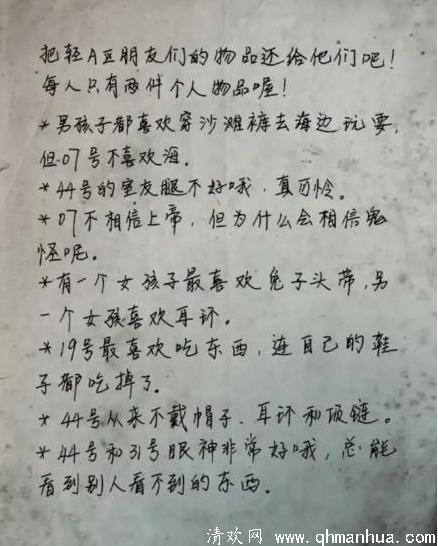 把轻A区朋友们的物品还给他们吧！
每人只有两件个人物品喔！
*男孩子都喜欢穿沙滩裤去海边玩耍，
但07号不喜欢海。
*44号的室友腿不好哦，真可怜。
*07不相信上帝，但为什么会相信鬼
怪呢。
*有一个女孩子最喜欢兔子头带，另
一个女孩喜欢耳环。
*19号最喜欢吃东西，连自己的鞋
子都吃掉了。
*44号从来不戴帽子、耳环和项链。
*44号和31号眼神非常好哦，总能
看到别人看不到的东西。
清欢网 www.qhmanhua.com